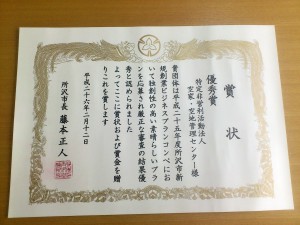 賞状
優秀賞
特定非営利活動法人
空家・空地管理センター様
貴団体は平成二十五年度所沢市新
規創業ビジネスプランコンペにお
いて独創性の高い素晴らしいプラ
ンを応募され厳正な審査の結果優
秀と認められました
よってここに賞状および賞金を贈
りこれを賞します
平成二十六年二月十二日
所沢市長 藤本正人